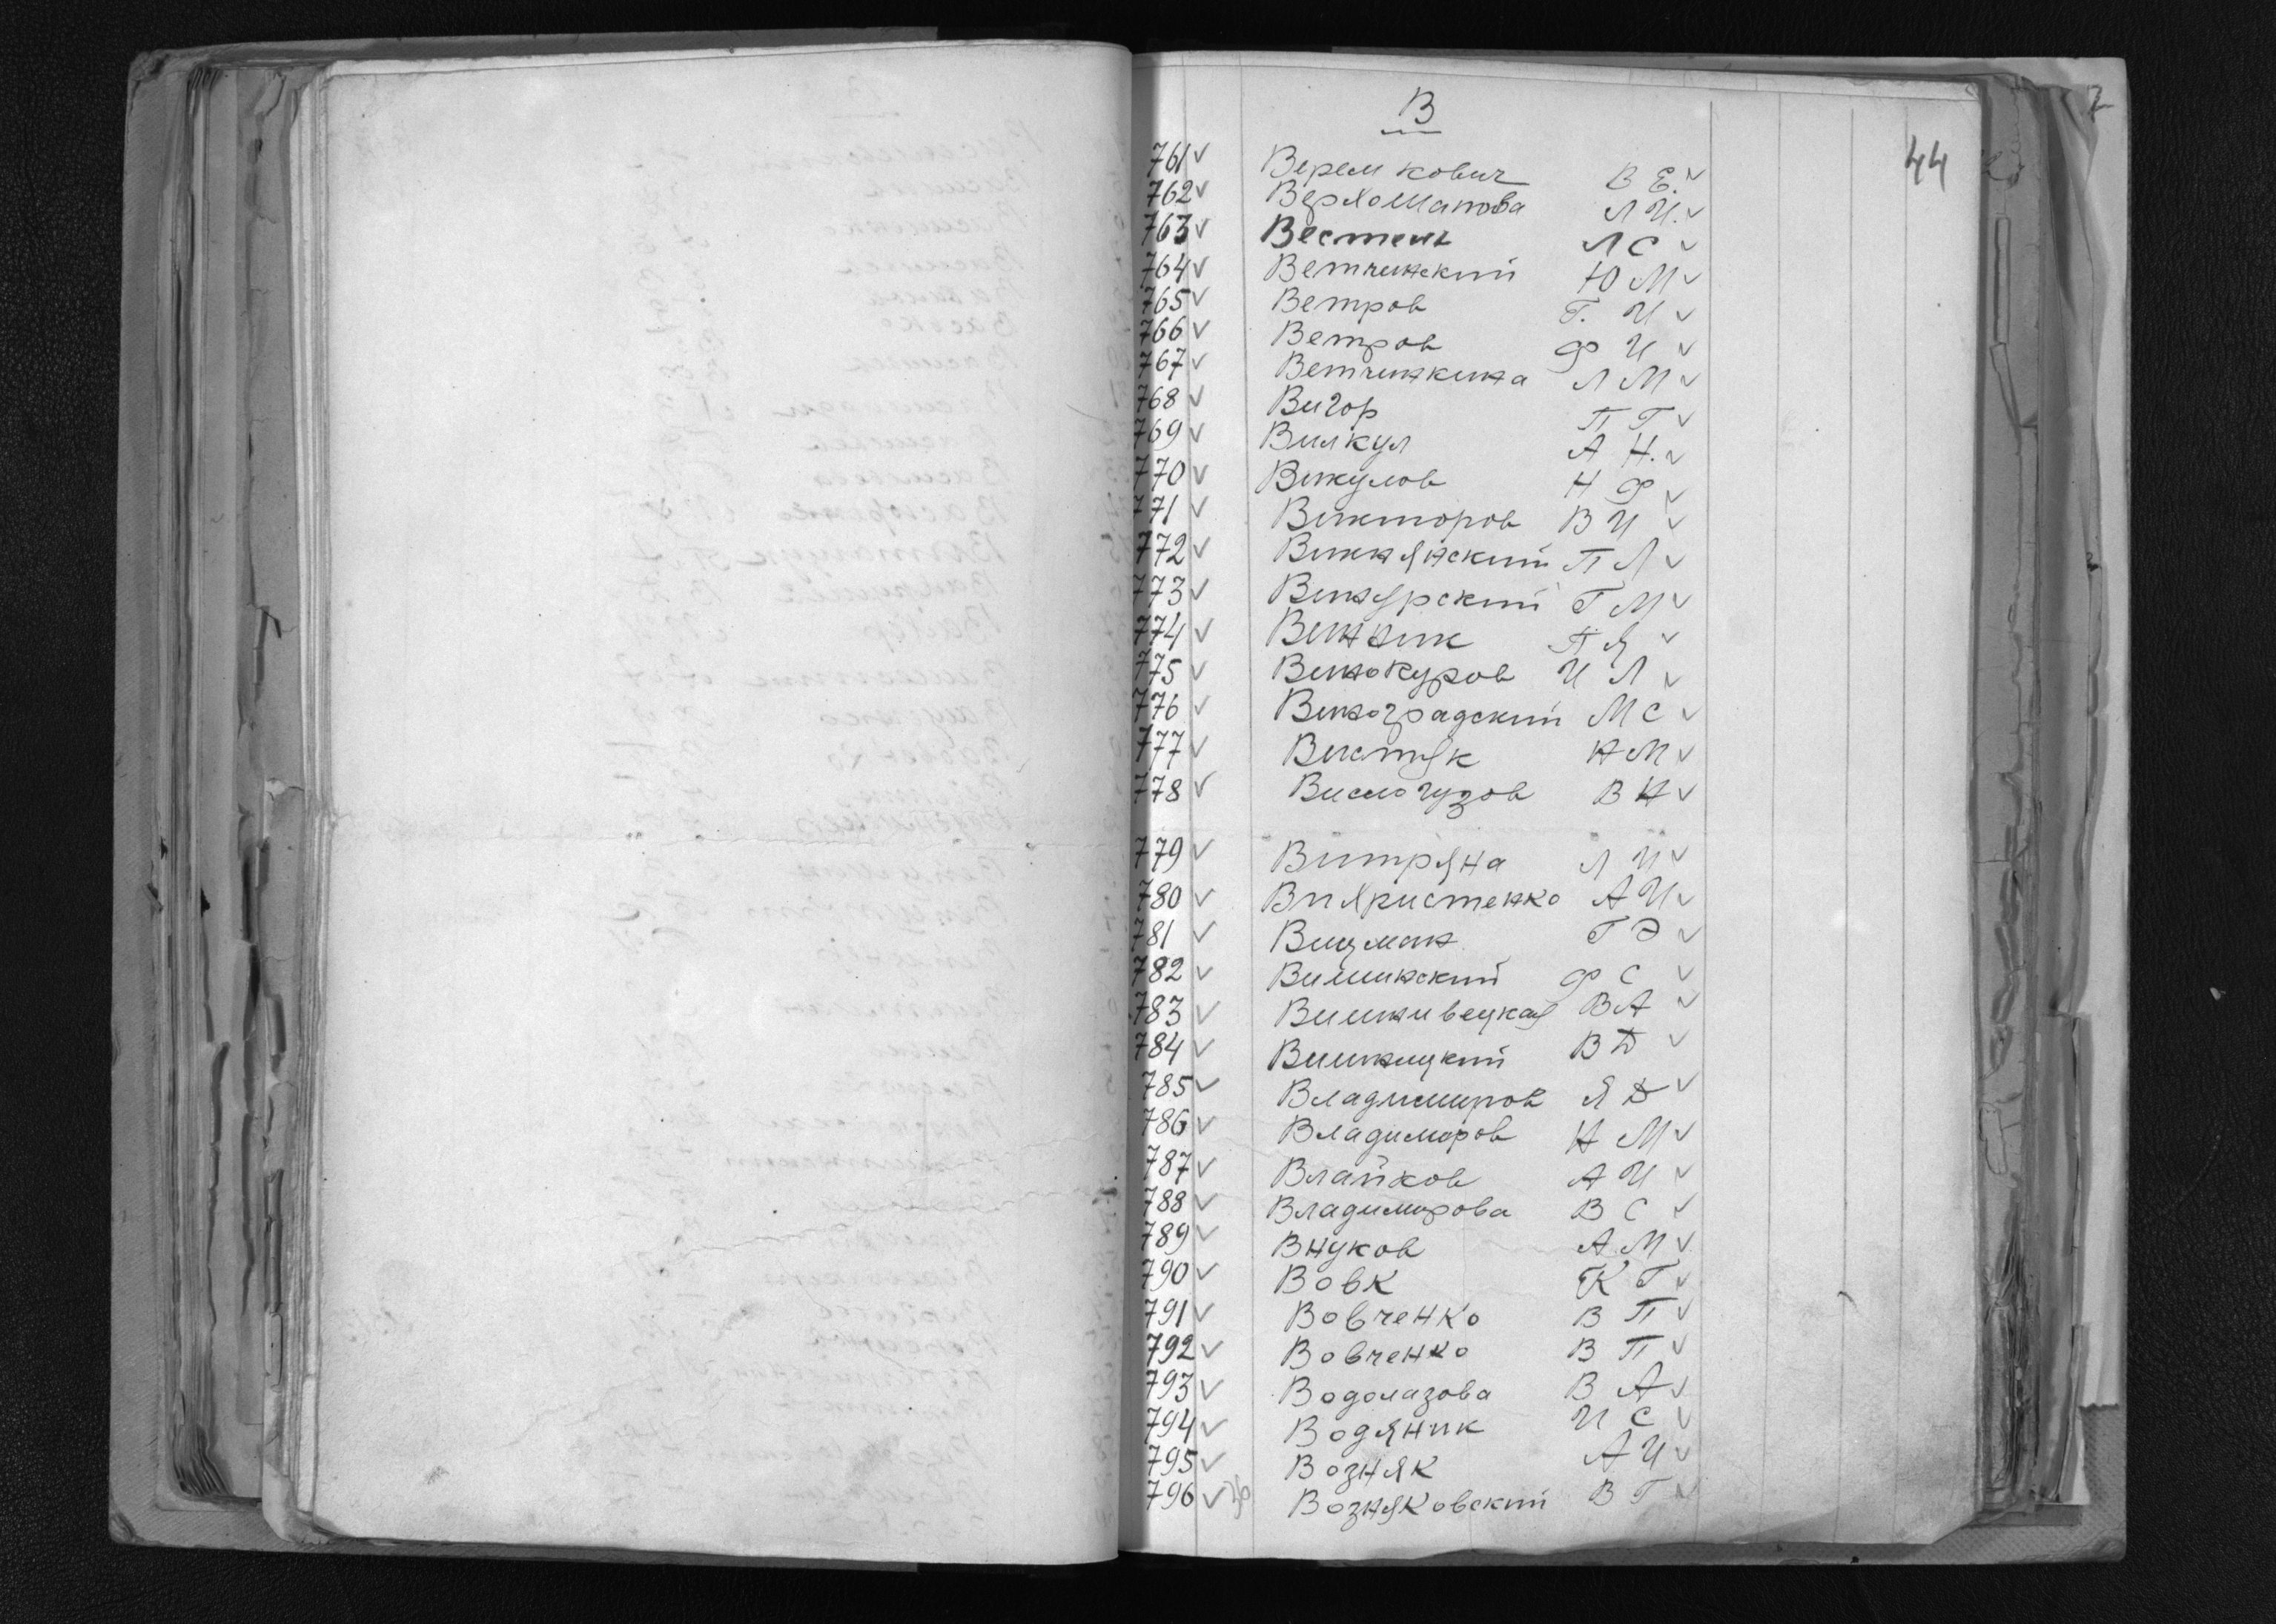 В
44
761 ✓ Веремкович В Е. ✓
762 ✓ Верхошапова Л И. ✓
763 ✓ Вестель Л С ✓
764 ✓ Ветчинский Ю М ✓
765 ✓ Ветров Г. И ✓
766 ✓ Ветров Ф И ✓
767 ✓ Ветчинкина Л М ✓
768 ✓ Вигор П Г ✓
769 ✓ Вилкул А Н. ✓
770 ✓ Викулов Н Ф ✓
771 ✓ Викторов В И ✓
772 ✓ П Л ✓
773 ✓ Винярский Г М ✓
774 ✓ Винник П Я ✓
775 ✓ Винокуров И Л ✓
776 ✓ Виноградский М С ✓
777 ✓ Вистяк Н М ✓
778 ✓ Вислогузов В Н ✓
779 ✓ Витряна Л И ✓
780 ✓ Вихристенко А И ✓
781 ✓ Вицман Г Э ✓
782 ✓ Вишинский Ф С ✓
783 ✓ Вишнивецкая В А ✓
784 ✓ Вишницкий В Д ✓
785 ✓ Владимиров Я Д ✓
786 ✓ Владимиров Н М ✓
787 ✓ Влайков А И ✓
788 ✓ Владимирова В С ✓
789 ✓ Внуков А М ✓
790 ✓ Вовк К Г ✓
791 ✓ Вовченко В П ✓
792 ✓ Вовченко В П ✓
793 ✓ Водолазова В А ✓
794 ✓ Водяник И С ✓
795 ✓ Возняк А И ✓
796 ✓ Возняковский В Г ✓